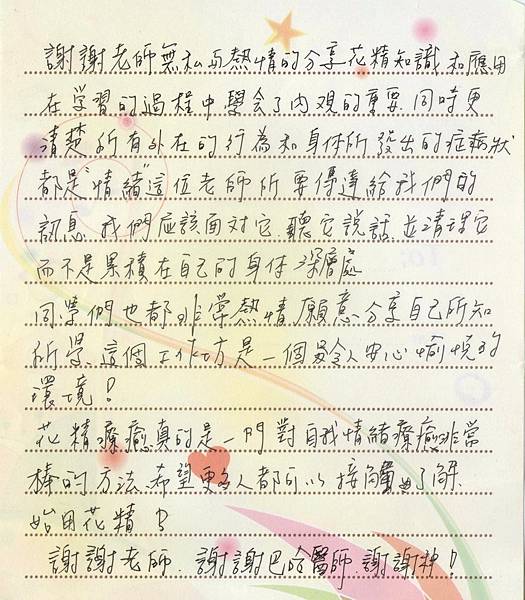 謝謝老師無私与熱情的分享花精知識和應用
在学習的過程中學会了內观的重要.同時更
清楚所有外在的行為和身体所發出的症病狀
都是"情緒"這位老師所要傳達給我們的
訊息.我們应該面对它.聽它說話.並清理它
而不是累積在自己的身体深層處
同學們也都非常熱情.願意分享自己所知
所學.這個工作坊是一個最令人安心愉悅的
環境!
花精療癒真的是一門對自我情緒療癒非常
棒的方法.希望更多人都可以接觸.了解.
始用花精!
謝謝老師.謝謝巴哈醫師.謝謝神!